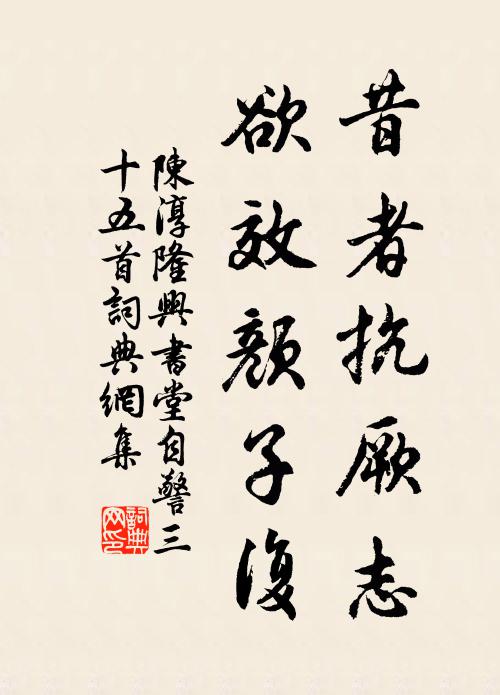 昔者抗厥志
欲效顏子復
陳淳隆興書堂自警三
十五首詞典網集
詞典網印